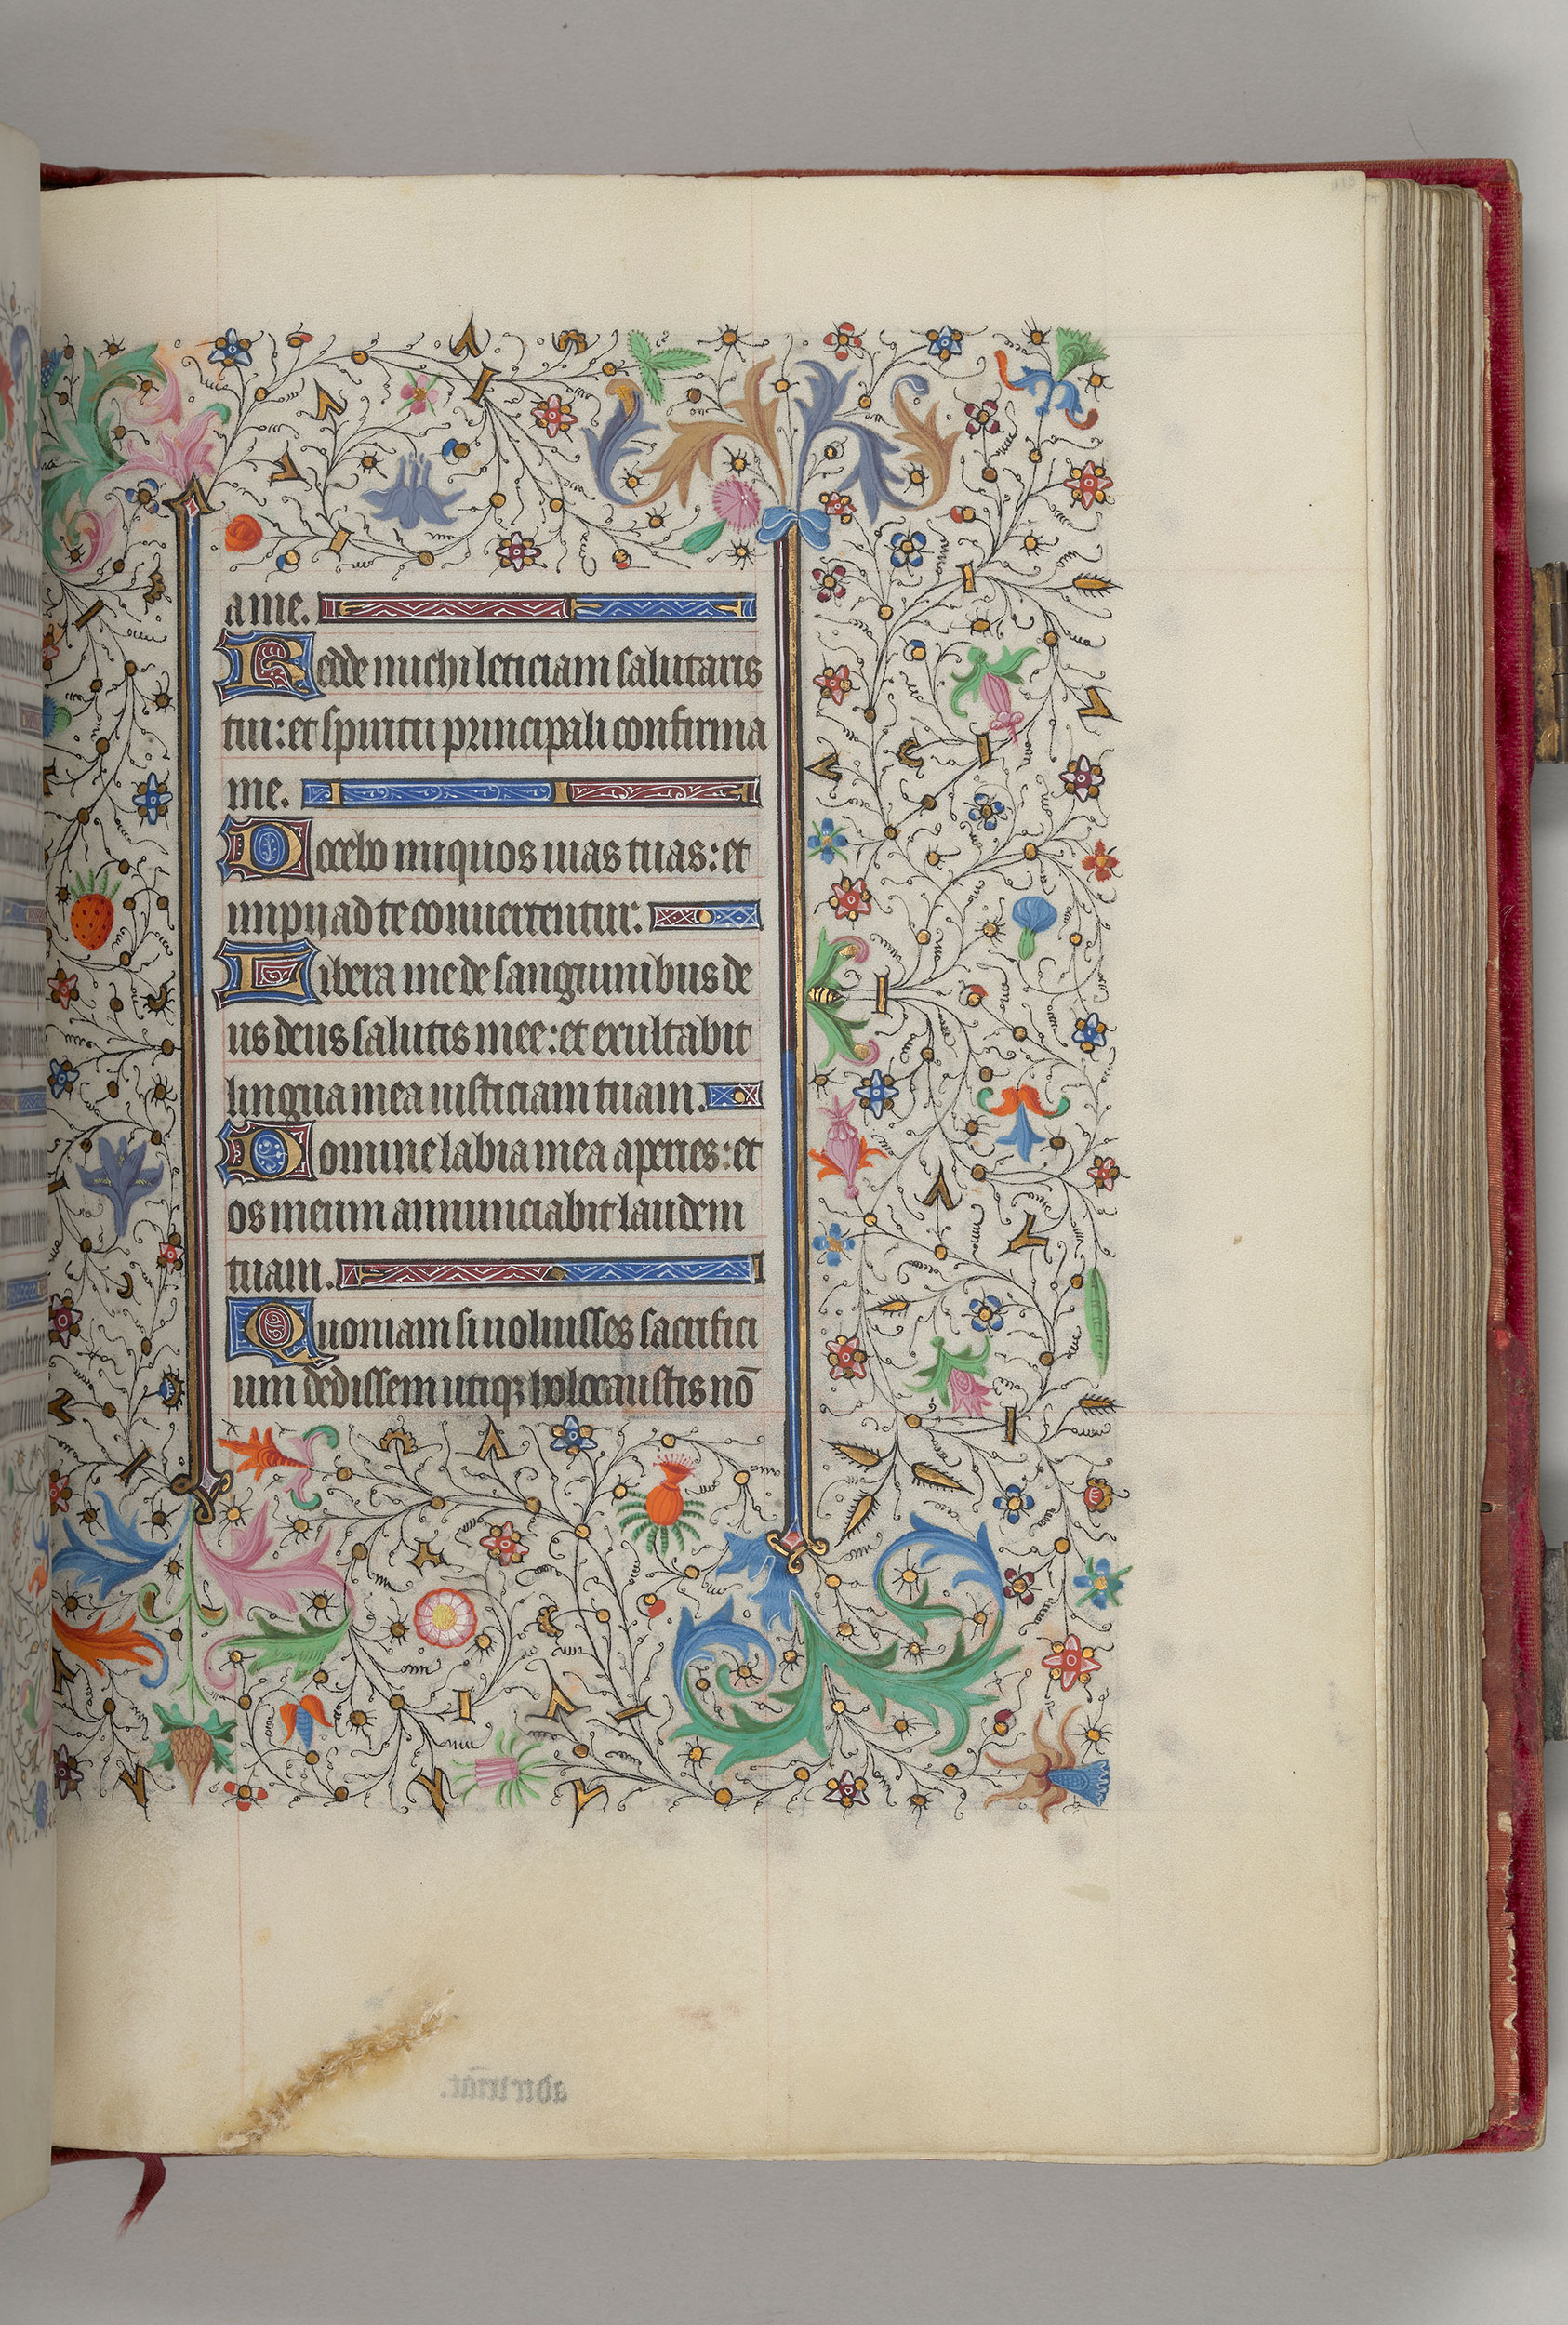 a me.
Redde michi leticiam salutaris
tui: et spiritu principali confirma
me.
Docebo iniquos uias tuas: et
impii ad te conuertentur.
Libera me de sanguinibus de
us deus salutis mee: et exultabit
lingua mea iusticiam tuam.
Domine labia mea aperies: et
os meum annunciabit laudem
tuam.
Quoniam si uoluisses sacrifici
um dedissem utiqꝫ holocaustis nō